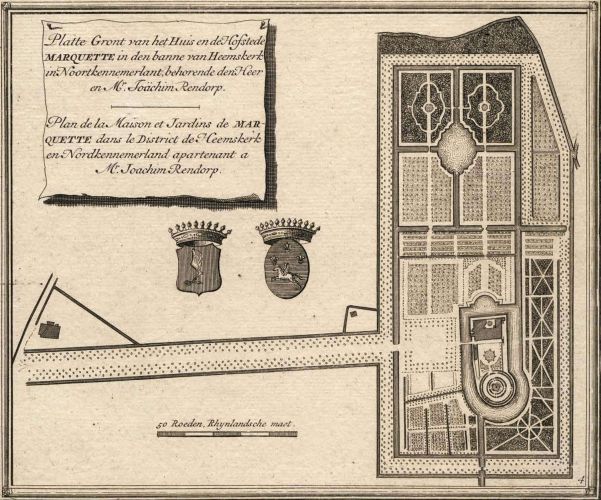 Platte Gront van het Huis en de Hofstede
MARQUETTE in den banne van Heemskerk
in Noortkennemerlant, behorende den Heer
en Mr. Joächim Rendorp.
Plan de la Maison et Jardins de MAR-
QUETTE dans le District de Heemskerk
en Nordkennemerland apartenant a
Mr. Joachim Rendorp.
50 Roeden, Rhynlandsche maet.
4